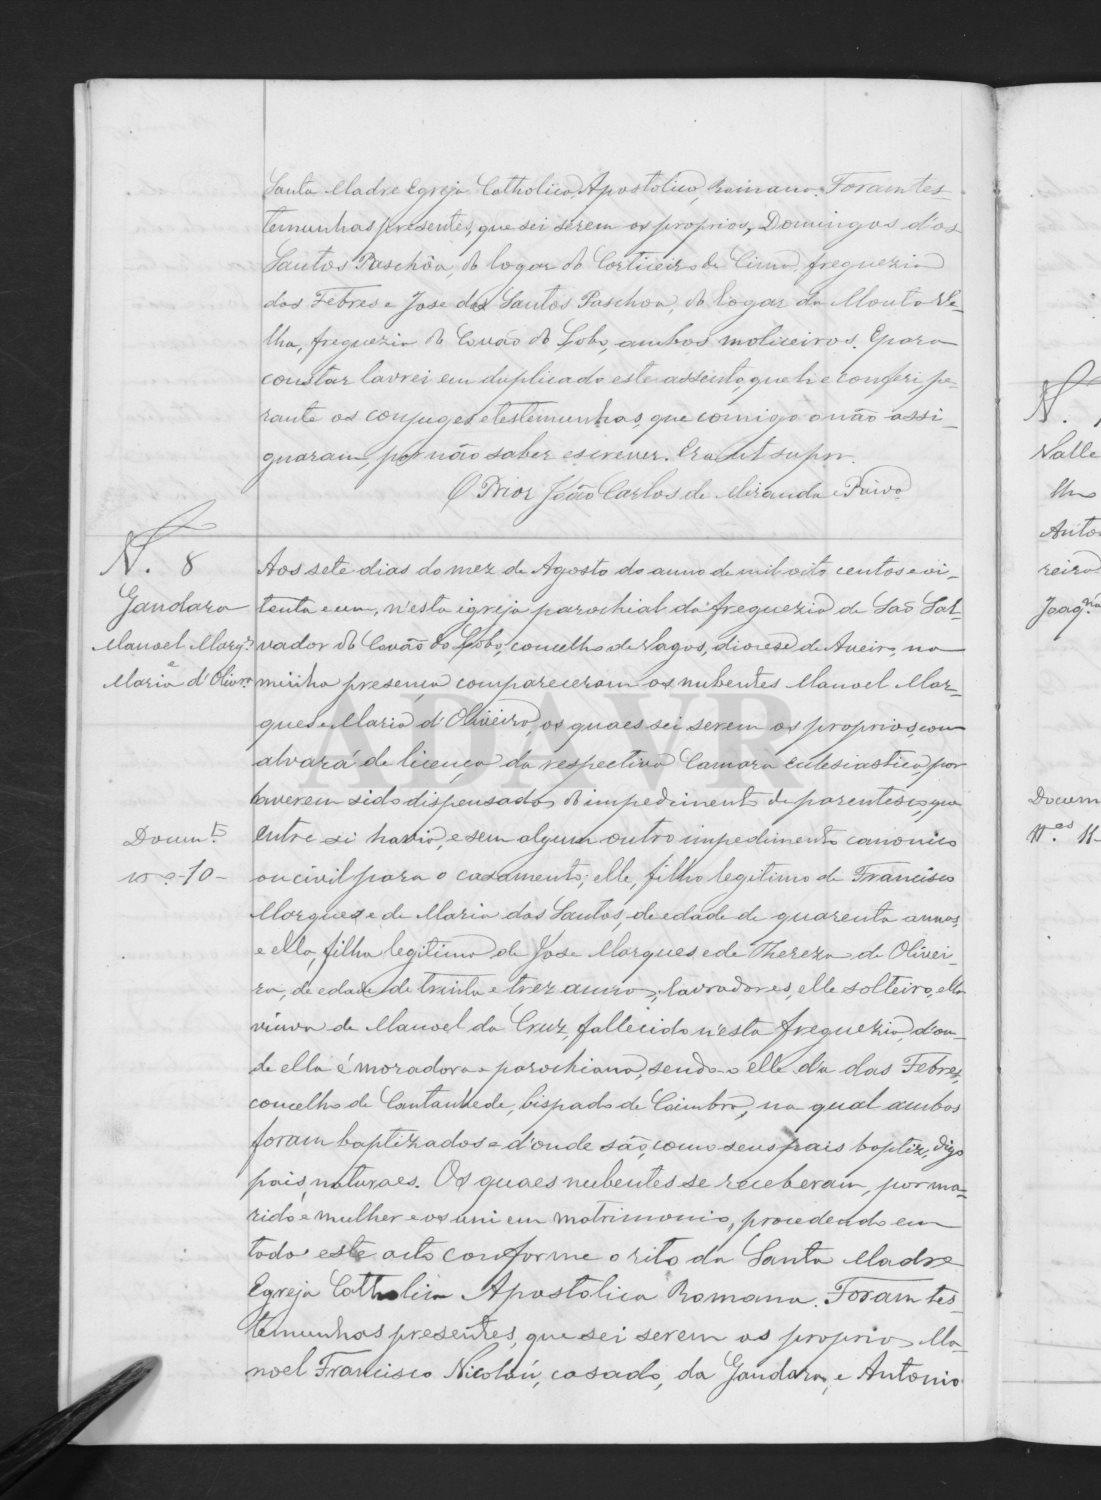 Santa Madre Egreja Catholica, Apostolica, Romana. Foram tes-
temunhas presentes, que sei serem os proprios, Domingos dos
Santos Paschôa, do logar do Corticeiro de Cima, freguezia
das Febres e Jose dos Santos Paschoa, do logar da Mouta Ve-
lha, freguezia do Covão do Lobo, ambos moliceiros. E para
constar lavrei em duplicado este assento, que li e conferi pe-
rante os conjuges e testemunhas, que comigo o não assi-
gnaram, por não saber escrever. Era ut supra.
O Prior João Carlos de Miranda e Paiva
N. 8
Gandara
Manoel Marq.s
e
Maria d'Olivr.a
Docum.to
nº -10-
Aos sete dias do mez de Agosto do anno de mil oito centos e oi-
tenta e um, n'esta igreja parochial da freguezia de São Sal-
vador do Covão do Lobo, concelho de Vagos, diocese de Aveiro, na
minha presença compareceram os nubentes Manoel Mar-
ques e Maria d'Oliveira, os quaes sei serem os proprios, com
alvará de licença da respectiva Camara Eclesiastica, por
haverem sido dispensados do impedimento de parentesco, que
entre si havia, e sem algum outro impedimento canonico
ou civil para o casamento; elle, filho legitimo de Francisco
Marques e de Maria dos Santos, de edade de quarenta annos,
e ella, filha legitima de Jose Marques e de Thereza de Olivei-
ra, de edade de trinta e trez annos, lavradores, elle solteiro, ella
viuva de Manoel da Cruz, fallecido n'esta freguezia, d'on-
de ella é moradora e parochiana, sendo-o elle da das Febres,
concelho de Cantanhede, bispado de Coimbra, na qual ambos
foram baptizados e d'onde são, como seus pais baptiz, digo
pais, naturaes. Os quaes nubentes se receberam, por ma-
rido e mulher e os uni em matrimonio, procedendo em
todo este acto conforme o rito da Santa Madre
Egreja Catholica Apostolica Romana. Foram tes-
temunhas presentes, que sei serem os proprios Ma-
noel Francisco Nicoláu, casado, da Gandara, e Antonio
N.
Valle
Anton
reira
Joaq.na
Docum
N.os 11-
ADAVR